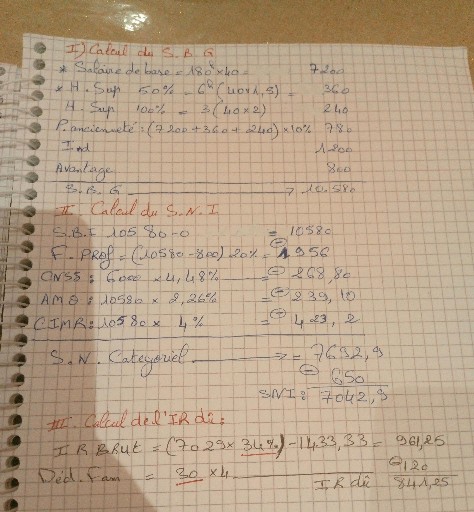 I) Calcul du S. B. G
* Salaire de base = 180h × 40 = 7200
* H. Sup 50% = 6h (40 × 1,5) = 360
H. Sup 100% = 3 (40 × 2) 240
P. ancienneté : (7200 + 360 + 240) × 10% 780
Ind 1200
Avantage 800
S. B. G → 10.580
II - Calcul du S. N. I
S. B. I 105 80 - 0 = 10580
F. PROF = (10580 - 800) 20% = ⊖ 1956
CNSS : 6000 × 4,48% = ⊖ 268,80
AMO : 10580 × 2,26% = ⊖ 239,10
CIMR : 10580 × 4% = ⊖ 423,2
S. N. Categoriel → = 7692,9
⊖ 650
SNI : 7042,9
III - Calcul de l'IR dû :
I R BRUt = (7029 × 34%) - 1433,33 = 961,25
Déd. Fam = 30 × 4 ⊖ 120
IR dû 841,25